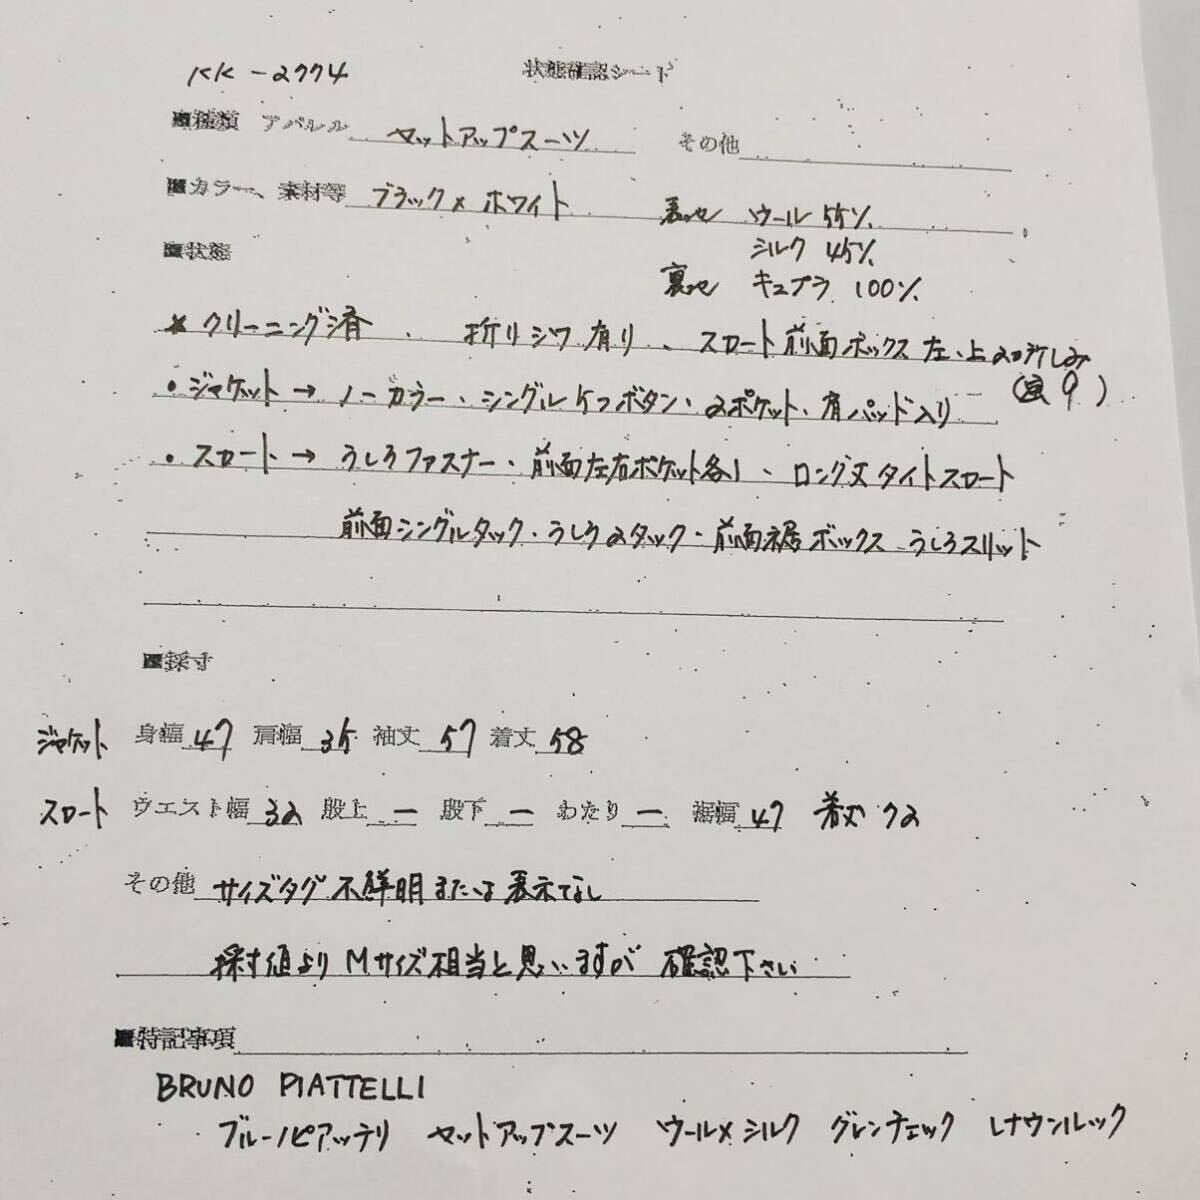 KK-2774 状態確認シート
■種類 アパレル セットアップスーツ その他
■カラー、素材等 ブラック×ホワイト 表地 ウール 55%
シルク 45%
■状態
裏地 キュプラ 100%
* クリーニング済 、 折りシワ有り 、 スカート前面ボックス左、上2ヶ所しみ
(図9)
・ジャケット→ ノーカラー・シングルケツボタン・2ポケット・肩パッド入り
・スカート→ うしろファスナー・前面左右ポケット各1、ロング丈タイトスカート
前面シングルタック・うしろ2タック・前面裾ボックス うしろスリット
■採寸
ジャケット 身幅 47 肩幅 35 袖丈 57 着丈 58
スカート ウエスト幅 32 股上 ー 股下 ー わたり ー 裾幅 47 着丈 72
その他 サイズタグ不鮮明または表示なし
採寸値よりMサイズ相当と思いますが 確認下さい
■特記事項
BRUNO PIATTELLI
ブルーノピアッテリ セットアップスーツ ウール×シルク グレンチェック レナウンルック